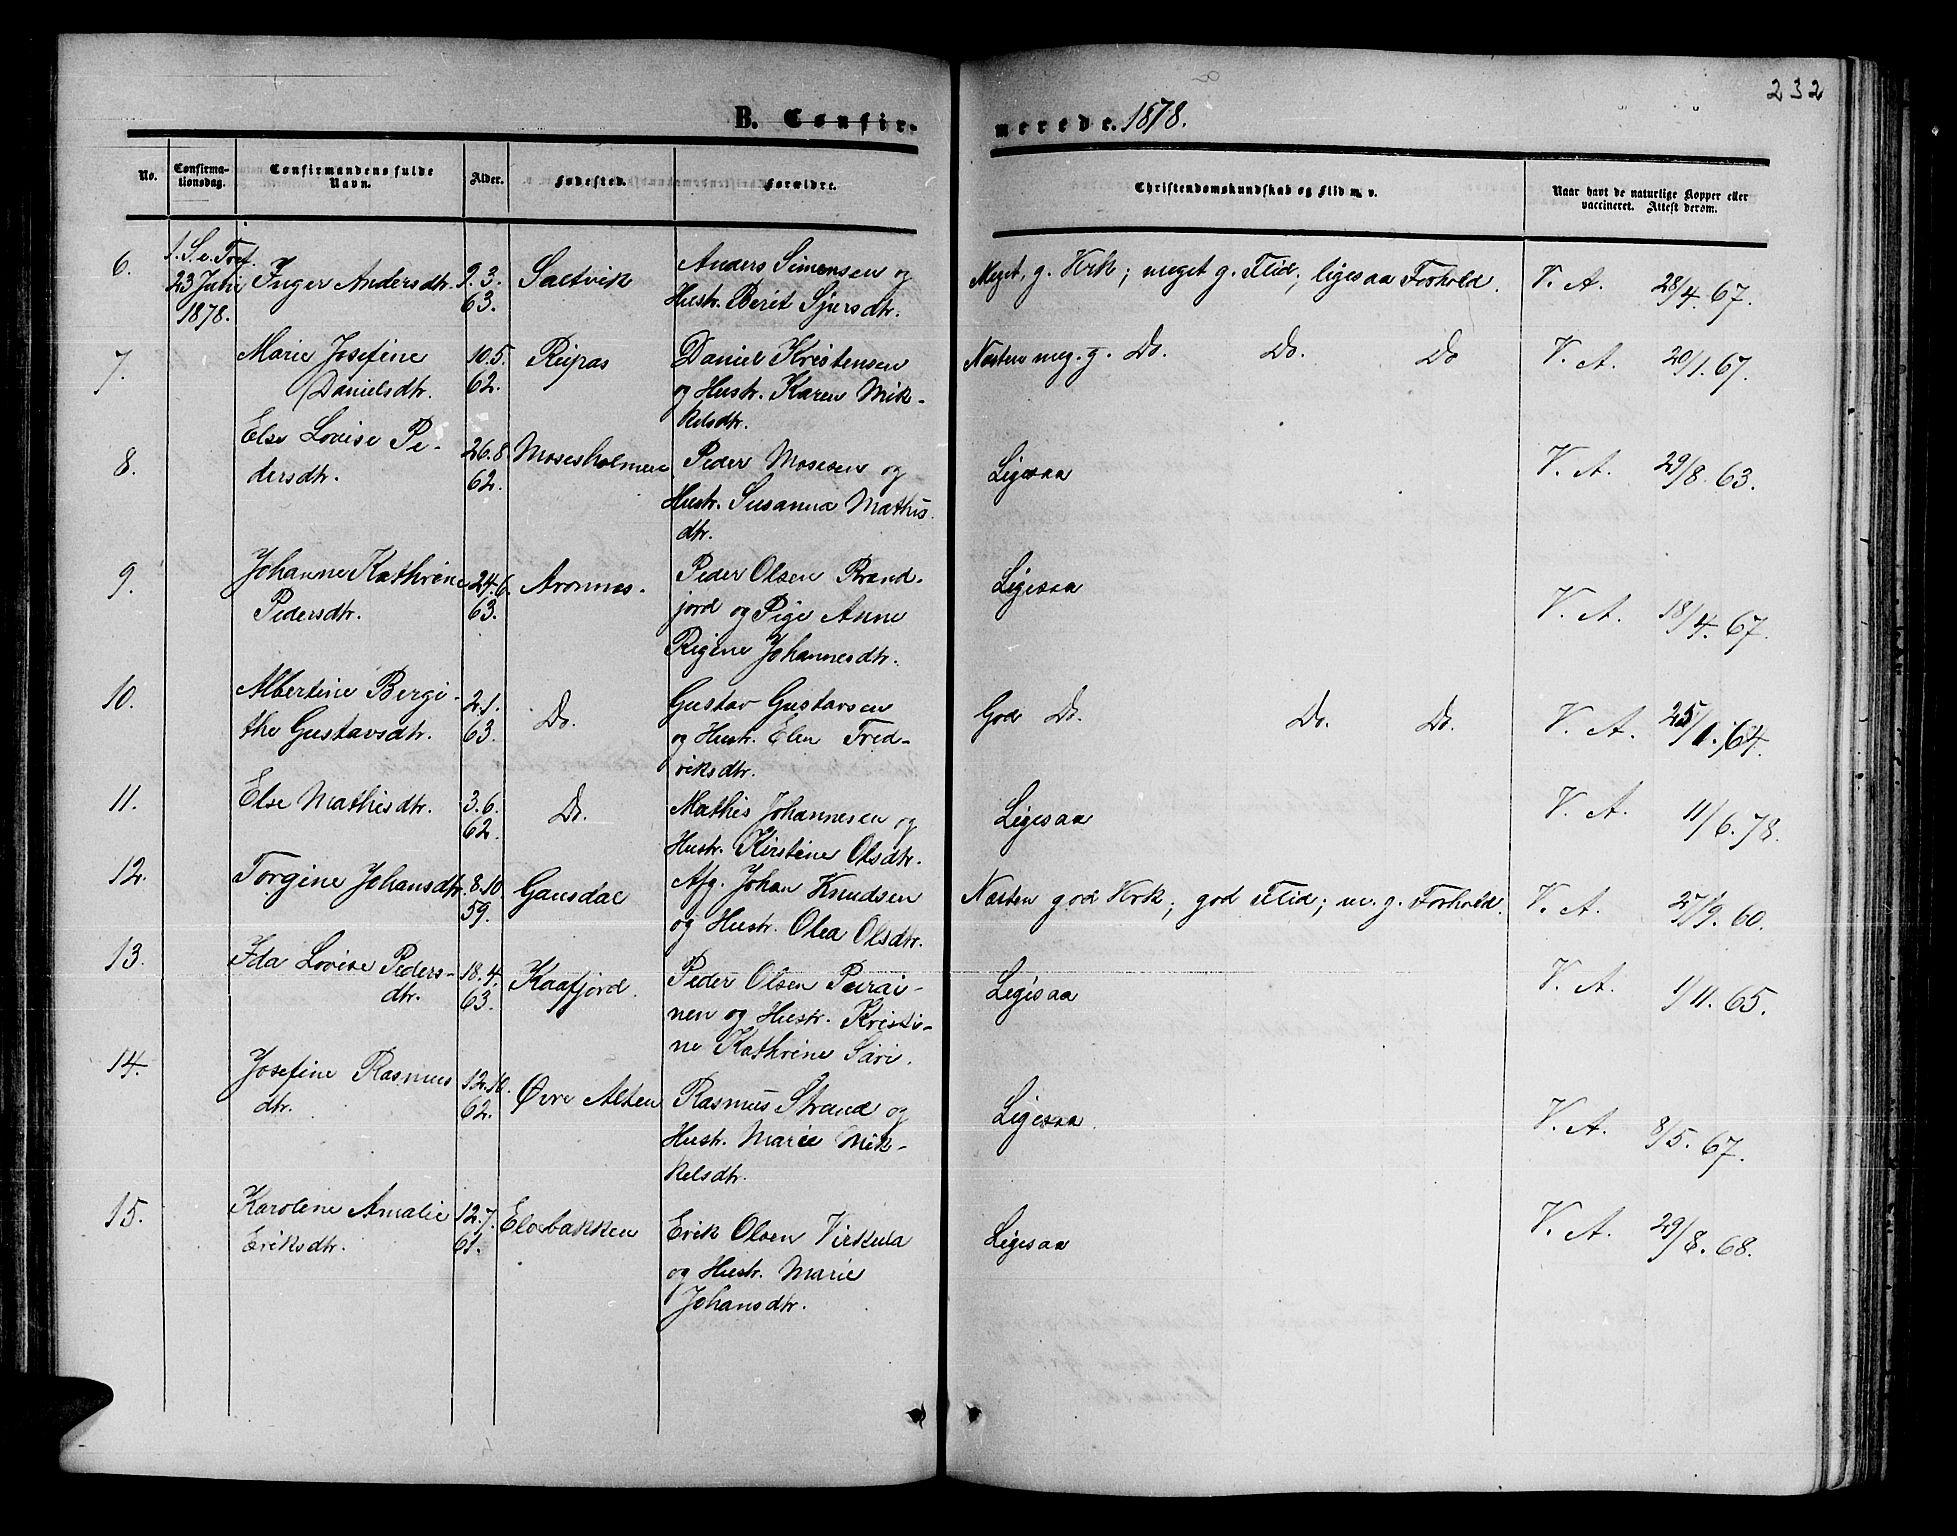 232
B. Confirmerede. 1878.
No.
Confirma-
tionsdag.
Confirmandens fulde
Navn.
Alder.
Fødested.
Forældre.
Christendomskundskab og Flid m. v.
Naar havt de naturlige Kopper eller
vaccineret. Attest derom.
6.
1. S. e. Tref.
23 Juni
1878.
Inger Andersdtr.
9.3.
63.
Saltvik
Anders Simonsen og
Hustr. Berit Sjursdtr.
Meget g. Krk; meget g. Flid; ligesaa Forhold.
V. A. 28/4. 67.
7.
Marie Josefine
Danielsdtr.
10.5.
62.
Reipas
Daniel Kristensen
og Hustr. Karen Mik-
kelsdtr.
Næsten meg. g. Do. Do. Do
V. A. 20/1. 67.
8.
Else Lovise Pe-
dersdtr.
26.8.
62.
Mosesholmen
Peder Mosesen og
Hustr. Susanna Mathis
dtr.
Ligesaa
V. A. 29/8. 63.
9.
Johanne Kathrine
Pedersdtr.
24.6.
63.
Aronnes.
Peder Olsen Brand-
jord og Pige Anne
Regine Johannesdtr.
Ligesaa
V. A. 18/4. 67.
10.
Albertine Bergi-
the Gustavsdtr.
2.1.
63.
Do.
Gustav Gustavsen
og Hustr. Elen Fred-
riksdtr.
God Do. Do. Do.
V. A. 25/1. 64.
11.
Else Mathisdtr.
3.6.
62.
Do.
Mathis Johannesen og
Hustr. Kirstine Olsdtr.
Ligesaa
V. A. 11/6. 78.
12.
Torgine Johansdtr.
8.10.
59.
Gansdal
Afg. Johan Knudsen
og Hustr. Olea Olsdtr.
Næsten god Krk; god Flid; m. g. Forhold.
V. A. 27/9. 60.
13.
Ida Lovise Peders-
dtr.
18.4.
63.
Kaafjord.
Peder Olsen Parai-
nen og Hustr. Kristi-
ne Kathrine Sari.
Ligesaa
V. A. 1/11. 65.
14.
Josefine Rasmus
dtr.
12.10.
62.
Øvre Alten
Rasmus Strand og
Hustr. Marie Mik-
kelsdtr.
Ligesaa.
V. A. 8/5. 67.
15.
Karoline Amalie
Eriksdtr.
12.7.
61.
Elvebakken
Erik Olsen Virkula
og Hustr. Marie
Johansdtr.
Ligesaa
V. A. 29/8. 68.